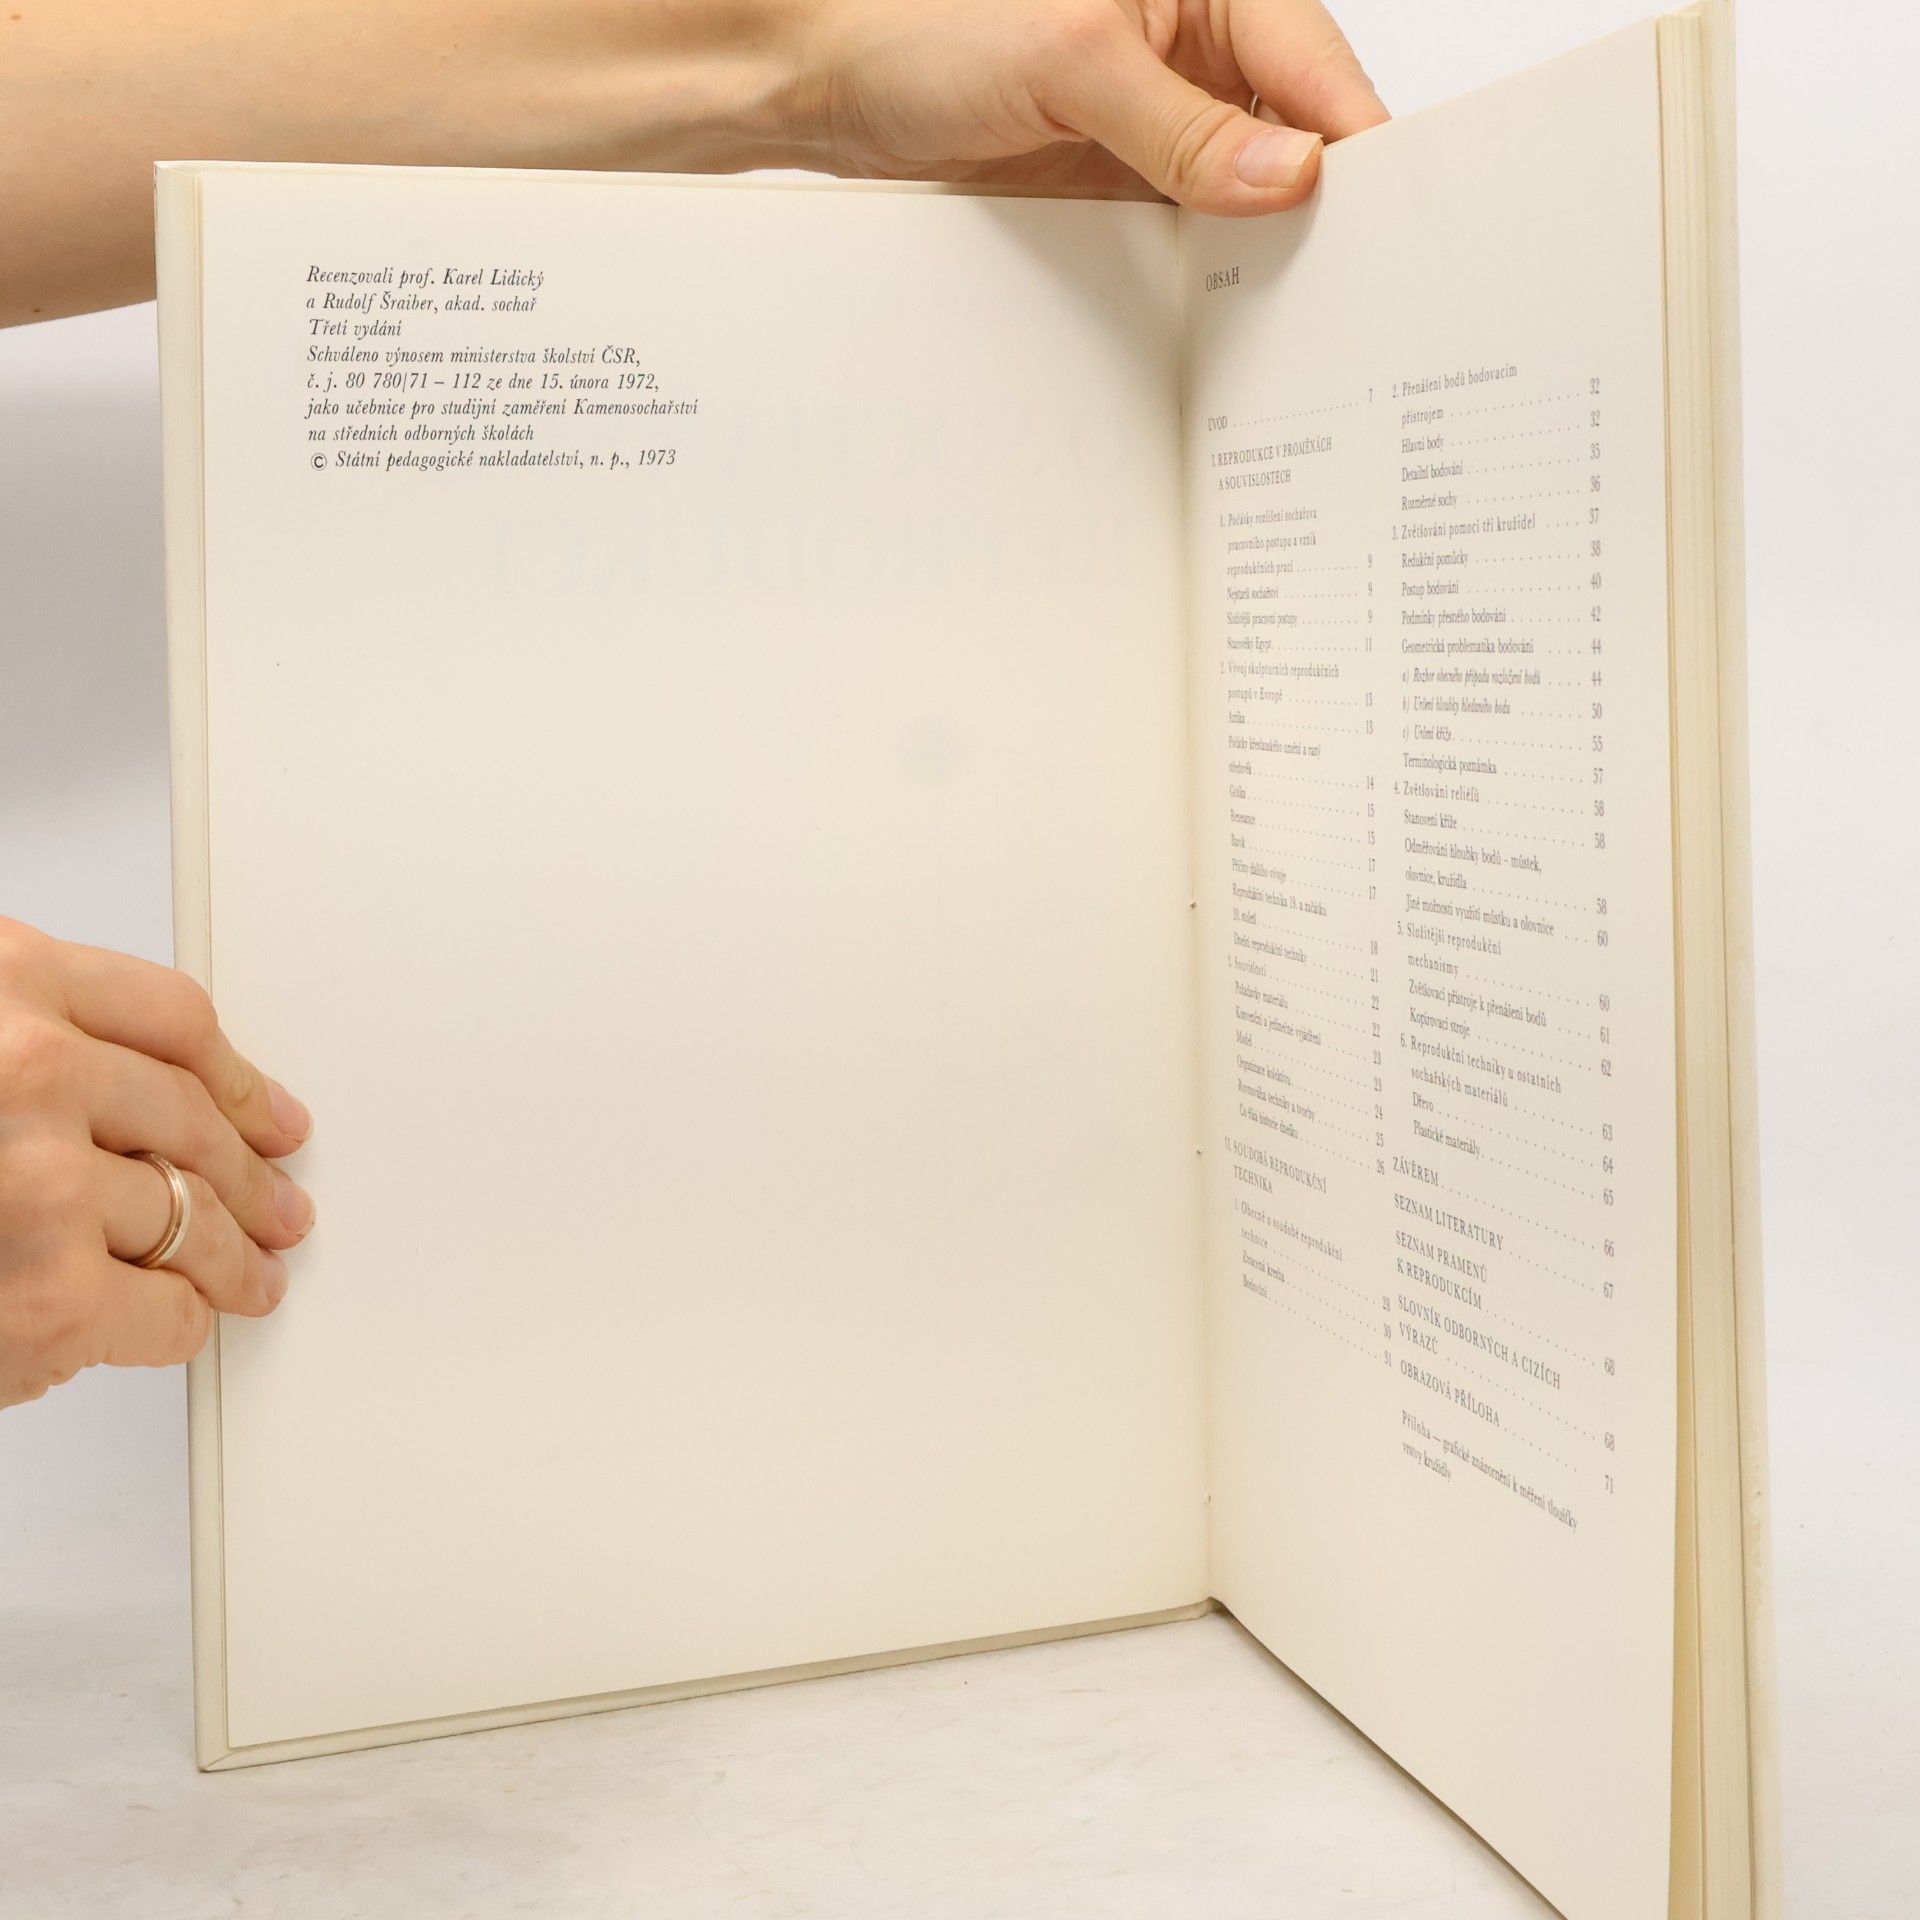 Recenzovali prof. Karel Lidický
a Rudolf Šraiber, akad. sochař
Třetí vydání
Schváleno výnosem ministerstva školství ČSR,
č. j. 80 780/71 – 112 ze dne 15. února 1972,
jako učebnice pro studijní zaměření Kamenosochařství
na středních odborných školách
© Státní pedagogické nakladatelství, n. p., 1973
OBSAH
ÚVOD . . . . . . . . . . 7
I. REPRODUKCE V PROMĚNÁCH
A SOUVISLOSTECH
1. Počátky rozlišení sochařova
pracovního postupu a vznik
reprodukčních prací . . . . . . . . . . 9
Nejstarší sochařství . . . . . . . . . . 9
Složitější pracovní postupy . . . . . . . . . . 9
Starověký Egypt . . . . . . . . . . 11
2. Vývoj skulpturních reprodukčních
postupů v Evropě . . . . . . . . . . 13
Antika . . . . . . . . . . 13
Počátky křesťanského umění a raný
středověk . . . . . . . . . . 14
Gotika . . . . . . . . . . 15
Renesance . . . . . . . . . . 15
Barok . . . . . . . . . . 17
Příčiny dalšího vývoje . . . . . . . . . . 17
Reprodukční technika 19. a začátku
20. století . . . . . . . . . . 18
Dnešní reprodukční techniky . . . . . . . . . . 21
3. Souvislosti . . . . . . . . . . 22
Požadavky materiálu . . . . . . . . . . 22
Konvenční a jedinečné vyjádření . . . . . . . . . . 23
Model . . . . . . . . . . 23
Organizace kolektivu . . . . . . . . . . 24
Rovnováha techniky a tvorby . . . . . . . . . . 25
Co říká historie dnešku . . . . . . . . . . 26
II. SOUDOBÁ REPRODUKČNÍ
TECHNIKA
1. Obecně o soudobé reprodukční
technice . . . . . . . . . . 28
Ztracená kresba . . . . . . . . . . 30
Bodování . . . . . . . . . . 31
2. Přenášení bodů bodovacím
přístrojem . . . . . . . . . . 32
Hlavní body . . . . . . . . . . 32
Detailní bodování . . . . . . . . . . 35
Rozměrné sochy . . . . . . . . . . 36
3. Zvětšování pomocí tří kružidel . . . . 37
Redukční pomůcky . . . . . . . . . . 38
Postup bodování . . . . . . . . . . 40
Podmínky přesného bodování . . . . . . . . 42
Geometrická problematika bodování . . . . 44
a) Rozbor obecného případu rozložení bodů . . . . 44
b) Určení hloubky hledaného bodu . . . . . . . 50
c) Určení kříže . . . . . . . . . . 55
Terminologická poznámka . . . . . . . . 57
4. Zvětšování reliéfů . . . . . . . . . . 58
Stanovení kříže . . . . . . . . . . 58
Odměřování hloubky bodů – můstek,
olovnice, kružidla . . . . . . . . . . 58
Jiné možnosti využití můstku a olovnice . . . 60
5. Složitější reprodukční
mechanismy . . . . . . . . . . 60
Zvětšovací přístroje k přenášení bodů . . . . 61
Kopírovací stroje . . . . . . . . . . 62
6. Reprodukční techniky u ostatních
sochařských materiálů . . . . . . . . 63
Dřevo . . . . . . . . . . 64
Plastické materiály . . . . . . . . . . 65
ZÁVĚREM . . . . . . . . . . 66
SEZNAM LITERATURY . . . . . . . . 67
SEZNAM PRAMENŮ
K REPRODUKCÍM . . . . . . . . . . 68
SLOVNÍK ODBORNÝCH A CIZÍCH
VÝRAZŮ . . . . . . . . . . 68
OBRAZOVÁ PŘÍLOHA . . . . . . . . 71
Příloha — grafické znázornění k měření tloušťky
vrstvy kružidly